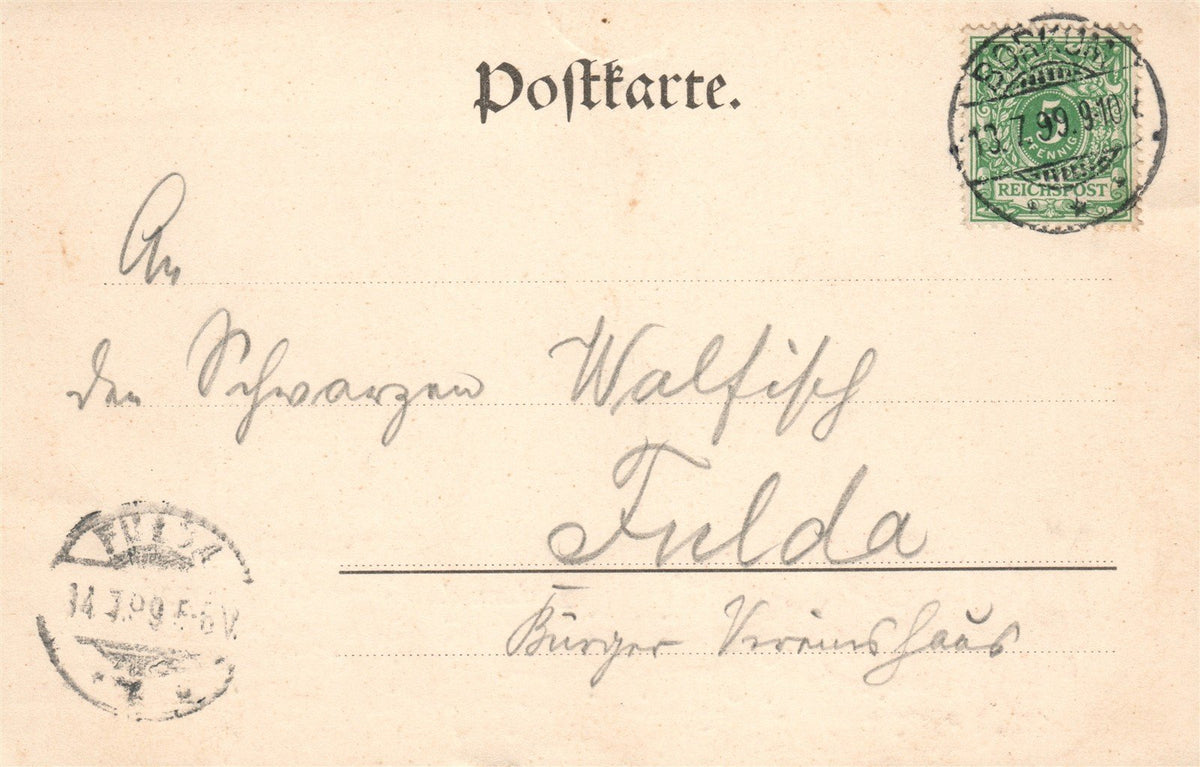 Postkarte.
BORKUM
13.7.99.9-10
5
PFENNIG
REICHSPOST
An
den Schwarzen Walfisch
Fulda
Bürger Vereinshaus
FULDA
14.7.99 5-6V.